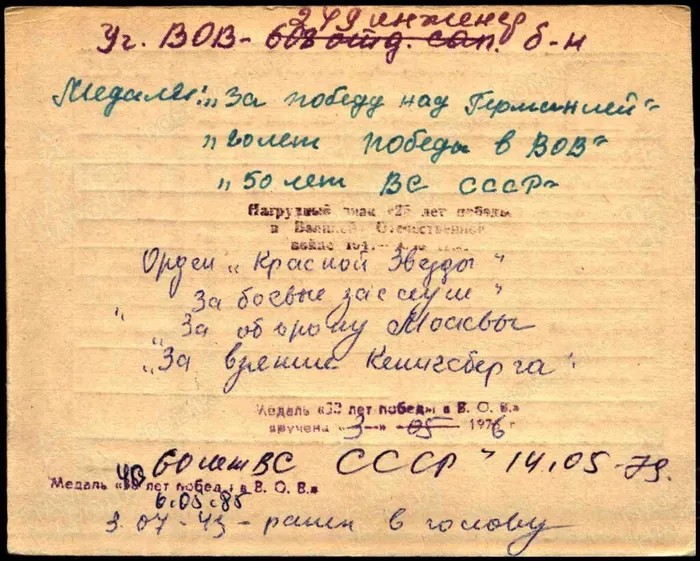 249 инженер
Уч. ВОВ - 608 отд. сап. б-н
Медали: „За победу над Германией"
„20 лет победы в ВОВ"
„50 лет ВС СССР"
Нагрудный знак «25 лет победы
в Великой Отечественной
войне
Орден „Красной Звезды"
„За боевые заслуги"
„За оборону Москвы
„За взятие Кенигсберга"
Медаль «30 лет победы в В. О. В.»
вручена «3» 05 1976 г
60 лет ВС СССР" 14.05-79.
Медаль «40 лет победы в В. О. В.»
6.05.85
3.07-43 - ранен в голову